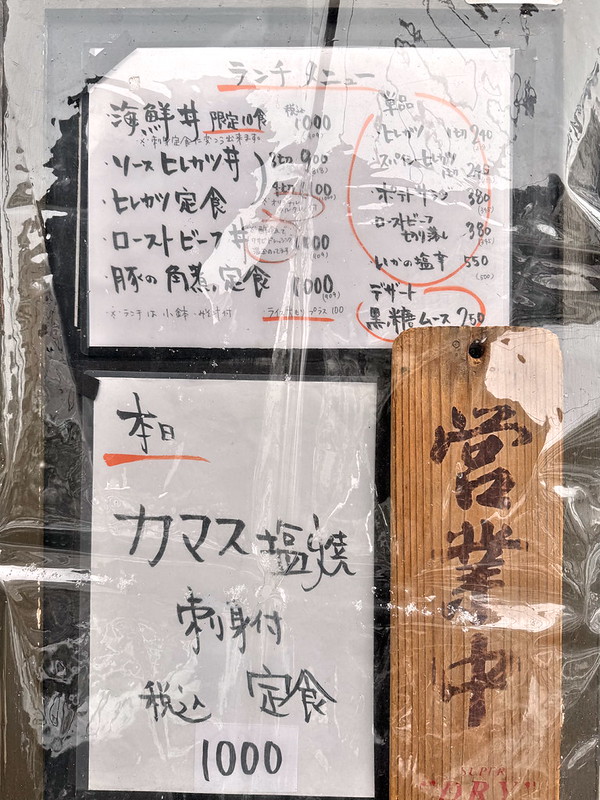 ランチ メニュー
海鮮丼 限定10食 税込 1000
ソースヒレカツ丼 3切 900
ヒレカツ定食 4切 1100
ローストビーフ丼
豚の角煮定食 1000
※ランチは小鉢・味噌汁付
プラス100
単品
・ヒレカツ 1切 240
・ポテトフライ 380
・ローストビーフ
切り落し 380
・いかの塩辛 550
デザート
黒糖ムース 250
本日
カマス塩焼
刺身付
税込 定食
1000
営業中
SUPER
"DRY"